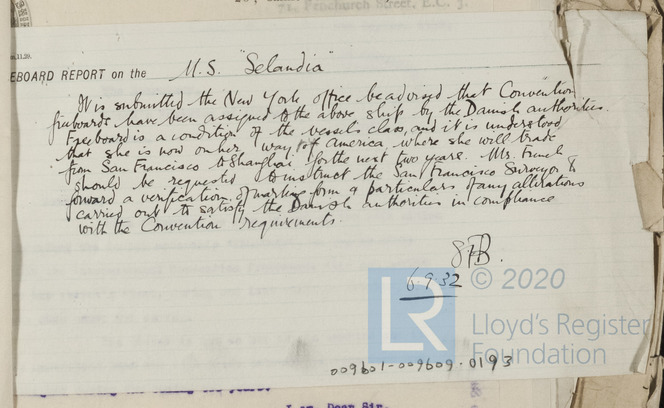 71, Fenchurch Street, E.C. 3.
EBOARD REPORT on the M.S. "Selandia"
It is submitted the New York office be advised that Convention
freeboards have been assigned to the above ship by the Danish authorities.
Freeboard is a condition of the vessels class, and it is understood
that she is now on her way to America where she will trade
from San Francisco to Shanghai for the next two years. Mr. French
should be requested to instruct the San Francisco Surveyor to
forward a verification of marking form & particulars of any alterations
carried out to satisfy the Danish authorities in compliance
with the Convention requirements.
6.9.32
LR © 2020
Lloyd's Register
Foundation
009601-009609-0193
Dear Sir,